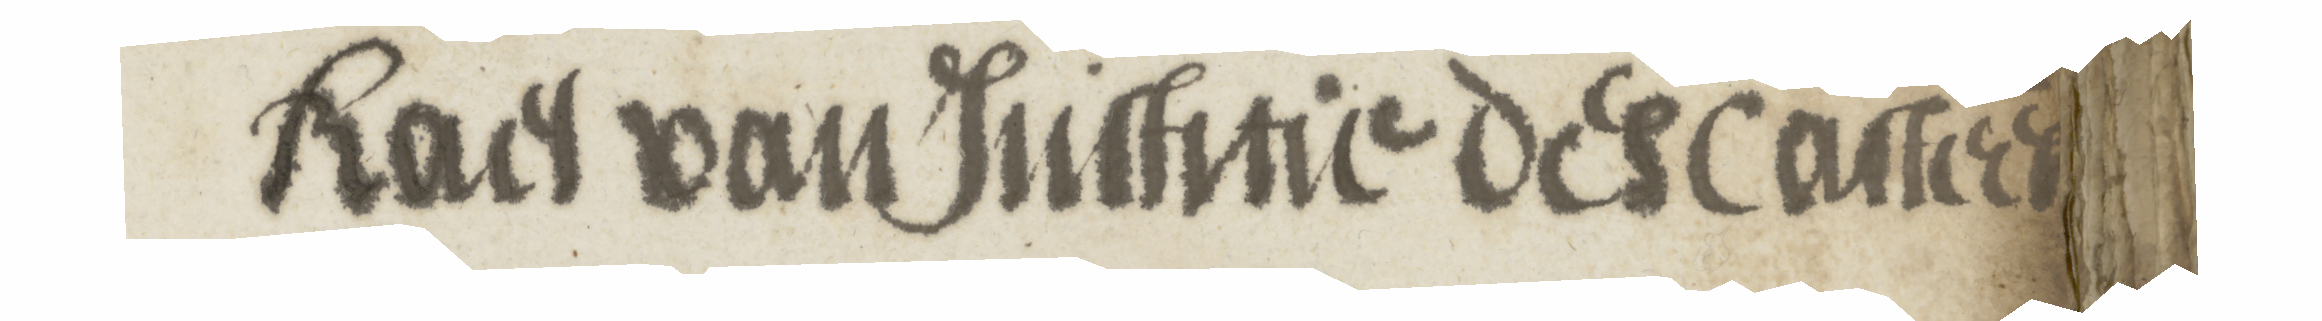 Raet van Justitie des Casteels